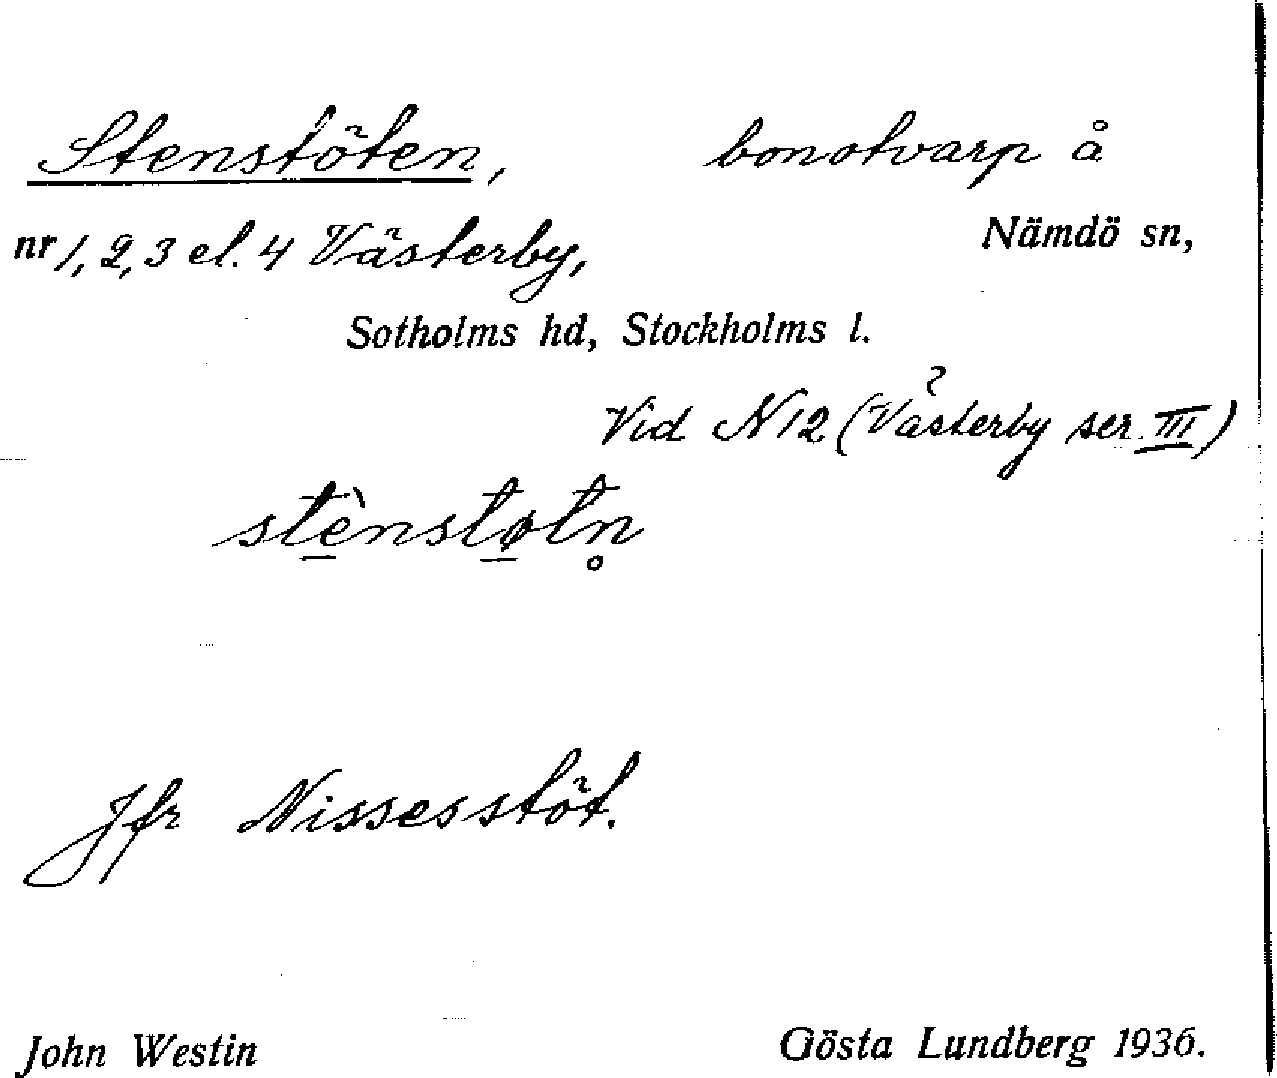 Stenstöten, bonotvarp å
nr 1, 2, 3 el. 4 Västerby, Nämdö sn,
Sotholms hd, Stockholms l.
Vid N12 (Västerby ser. III)
stè̠nstø̠tn̥
Jfr Nissesstöt.
John Westin Gösta Lundberg 1936.